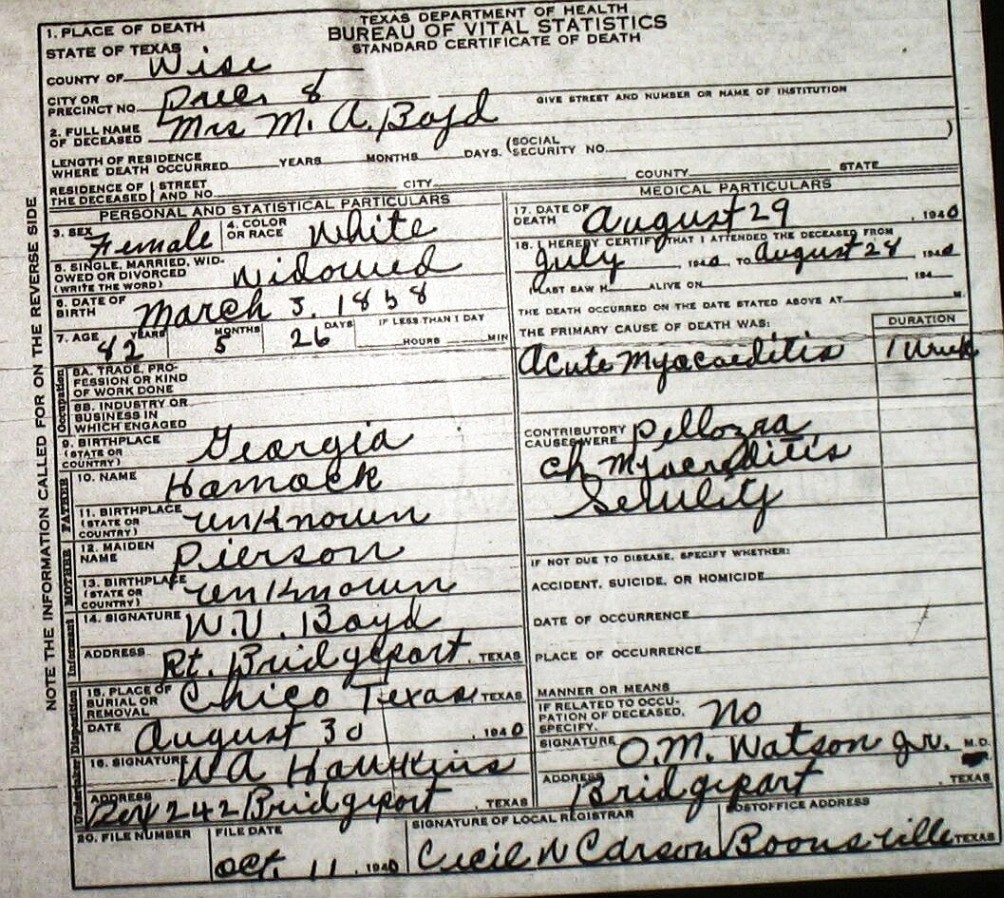 TEXAS DEPARTMENT OF HEALTH
BUREAU OF VITAL STATISTICS
STANDARD CERTIFICATE OF DEATH
NOTE THE INFORMATION CALLED FOR ON THE REVERSE SIDE
1. PLACE OF DEATH
STATE OF TEXAS
COUNTY OF Wise
CITY OR PRECINCT NO. Prec. 8 GIVE STREET AND NUMBER OR NAME OF INSTITUTION
2. FULL NAME OF DECEASED Mrs M. A. Boyd
LENGTH OF RESIDENCE WHERE DEATH OCCURRED YEARS MONTHS DAYS. (SOCIAL SECURITY NO. )
RESIDENCE OF THE DECEASED STREET AND NO. CITY COUNTY STATE
PERSONAL AND STATISTICAL PARTICULARS
3. SEX Female 4. COLOR OR RACE White
5. SINGLE, MARRIED, WIDOWED OR DIVORCED (WRITE THE WORD) Widowed
6. DATE OF BIRTH March 3. 1858
7. AGE YEARS 82 MONTHS 5 DAYS 26 IF LESS THAN 1 DAY HOURS MIN
Occupation
8A. TRADE, PROFESSION OR KIND OF WORK DONE
8B. INDUSTRY OR BUSINESS IN WHICH ENGAGED
9. BIRTHPLACE (STATE OR COUNTRY) Georgia
FATHER
10. NAME Hamock
11. BIRTHPLACE (STATE OR COUNTRY) unknown
MOTHER
12. MAIDEN NAME Pierson
13. BIRTHPLACE (STATE OR COUNTRY) unknown
Informant
14. SIGNATURE W.V. Boyd
ADDRESS Rt. Bridgeport, TEXAS
Disposition
15. PLACE OF BURIAL OR REMOVAL Chico Texas TEXAS
DATE August 30, 1940
Undertaker
16. SIGNATURE WA Hawkins
ADDRESS Box 242 Bridgeport, TEXAS
MEDICAL PARTICULARS
17. DATE OF DEATH August 29, 1940
18. I HEREBY CERTIFY THAT I ATTENDED THE DECEASED FROM
July 1940 TO August 28 1940
I LAST SAW H ALIVE ON 194
THE DEATH OCCURRED ON THE DATE STATED ABOVE AT M.
THE PRIMARY CAUSE OF DEATH WAS: DURATION
Acute Myocarditis 1 week
CONTRIBUTORY CAUSES WERE Pellogra
Ch Myocarditis
IF NOT DUE TO DISEASE, SPECIFY WHETHER:
ACCIDENT, SUICIDE, OR HOMICIDE
DATE OF OCCURRENCE
PLACE OF OCCURRENCE
MANNER OR MEANS
IF RELATED TO OCCUPATION OF DECEASED, SPECIFY. No
SIGNATURE O.M. Watson Jr. M.D.
ADDRESS Bridgeport, TEXAS
20. FILE NUMBER FILE DATE Oct. 11, 1940 SIGNATURE OF LOCAL REGISTRAR Cecil N Carson POSTOFFICE ADDRESS Boonsville TEXAS